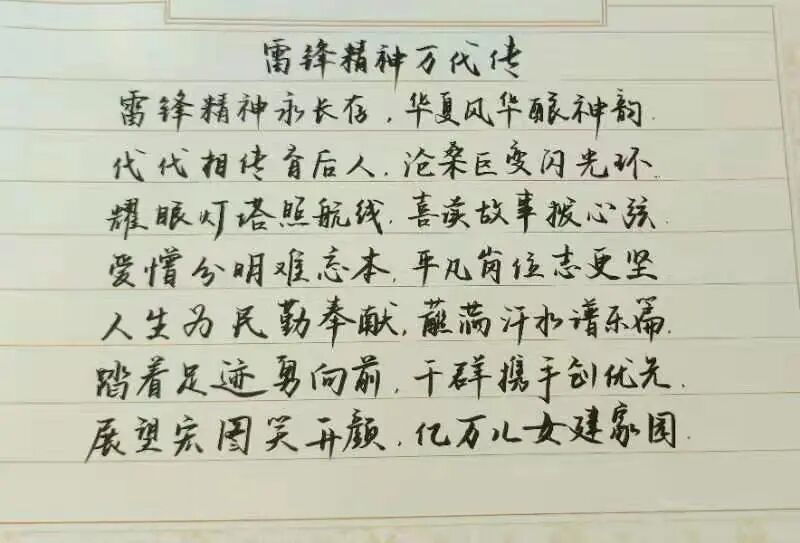 雷锋精神万代传
雷锋精神永长存，华夏风华酿神韵.
代代相传育后人，沧桑巨变闪光环.
耀眼灯塔照航线，喜读故事拨心弦.
爱憎分明难忘本，平凡岗位志更坚
人生为民勤奉献，蘸满汗水谱乐篇.
踏着足迹勇向前，干群携手创优先.
展望宏图笑开颜，亿万儿女建家园.